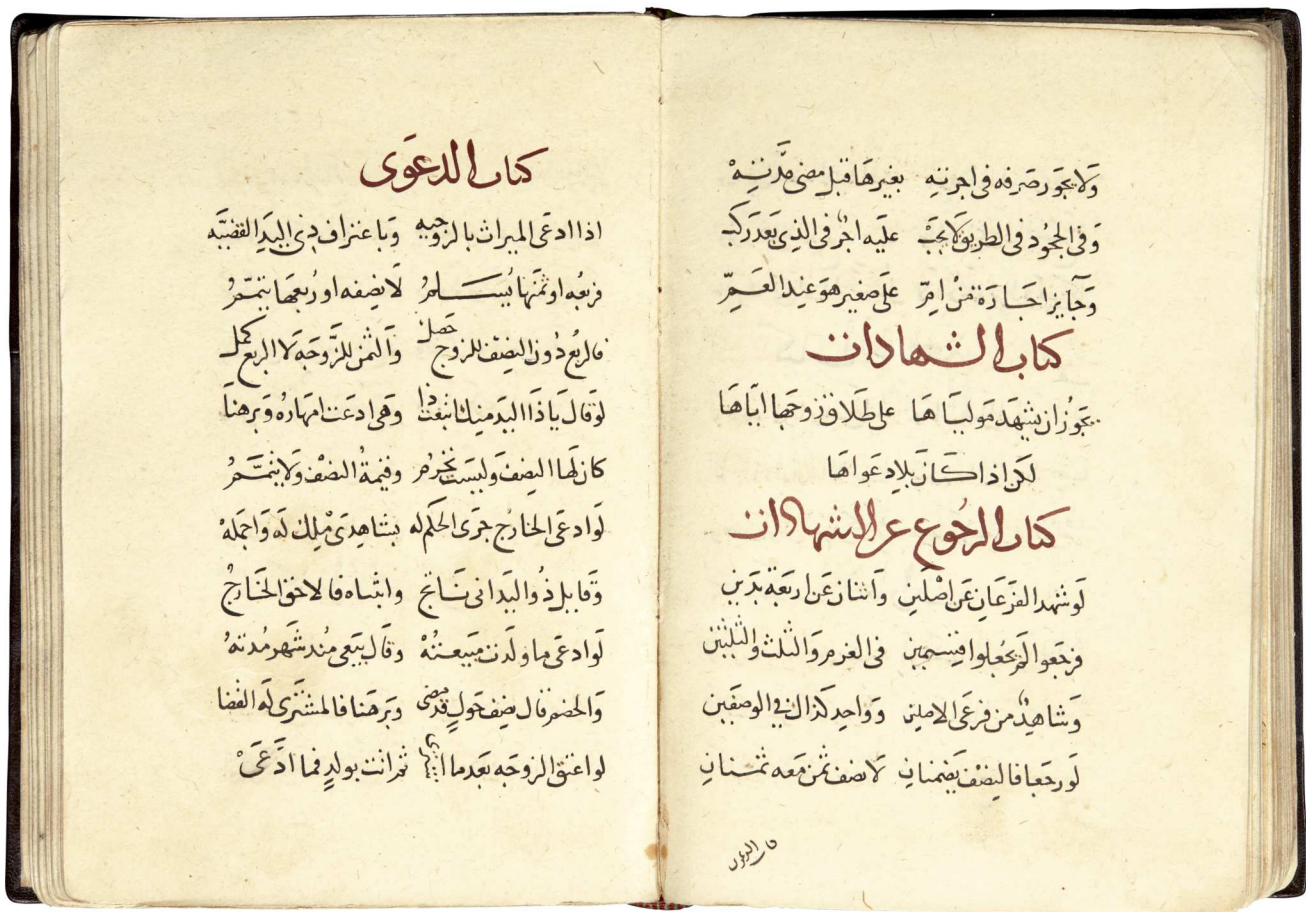 ولا يجوز صرفه في اجرته بغيرها قبل مضي مدته
وفي الجحود في الطريق لا يجب عليه اجر في الذي بعد ركب
وجايز اجارة من ام على صغير هو عند العم
كتاب الشهادات
يجوز ان يشهد مولياها على طلاق زوجها اياها
لكن اذا كان بلا دعواها
كتاب الرجوع عن الشهادات
لو شهد الفرعان عن اصلين واثنان عن اربعة بدين
فرجعوا لم يجعلوا قسمين في الغرم والثلث والثلثين
وشاهد من فرعي الاصلين وواحد كذاك في الوصفين
لو رجعا فالنصف يضمنان لا نصف ثمن معه ثمنان
كتاب الدعوى
اذا ادعى الميراث بالزوجيه وباعتراف ذي اليد القضيه
فربعه او ثمنها يسلم لا نصفه او ربعها يتمم
فالربع دون النصف للزوج حصل والثمن للزوجه لا الربع كمل
لو قال يا ذا اليد منك ابتعت ذا وهي ادعت امهاره وبرهنا
كان لها النصف وليست تحرم وقيمة النصف ولا يتمم
لو ادعى الخارج جرى الحكم له بشاهدي ملك له واجمله
وقابل ذو اليد اني ناتج واثبتاه فالاحق الخارج
لو ادعى ما ولدت مبيعته وقال بيعي منذ شهر مدته
والخصم قال نصف حول قد مضى وبرهنا فالمشتري له القضا
لو اعتق الزوجه بعدما اشترى ثم اتت بولد فما ادعى